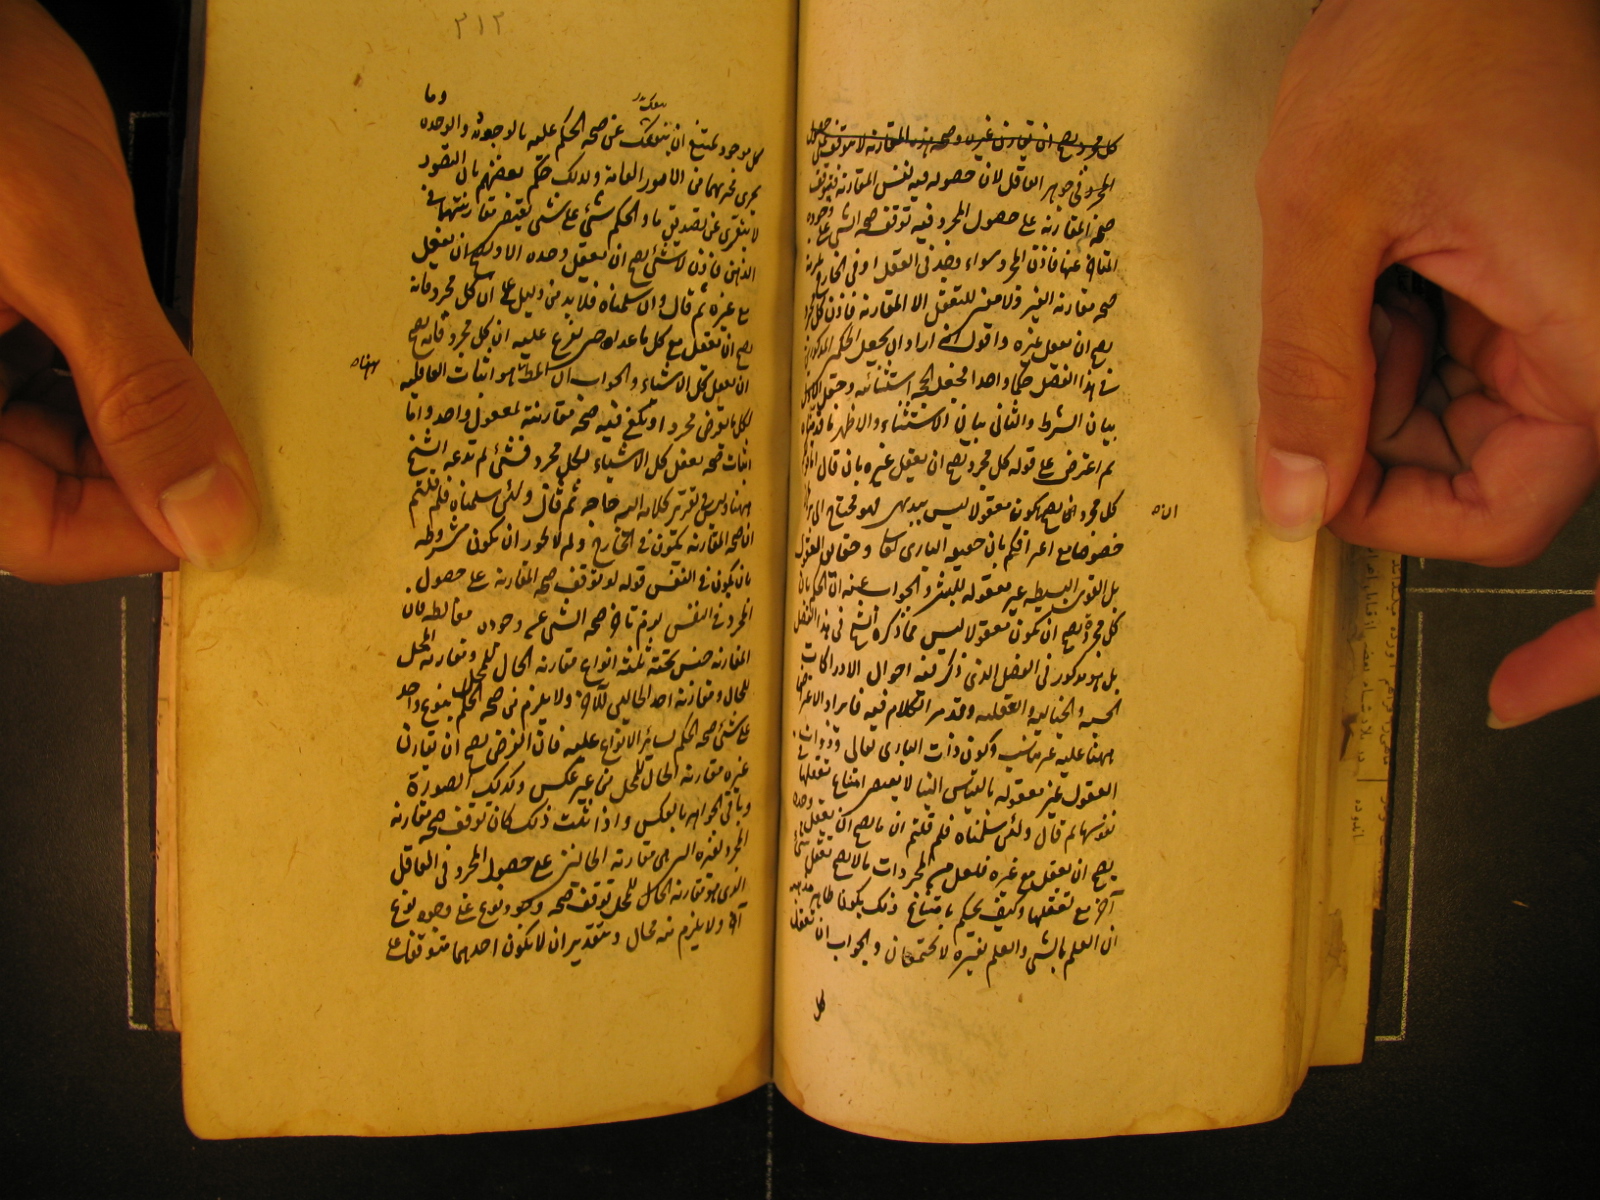 كل مجرد يصح ان يقارن غيره وصحة هذه المقارنة لا تتوقف على حصول
المجرد في جوهر العاقل لان حصوله فيه نفس المقارنة فتوقف
صحة المقارنة على حصول المجرد فيه توقف صحة الشي على وجوده
المتاخر عنها فاذن المجرد سواء وجد في العقل او في الخارج يلزمه
صحة مقارنة الغير ولا معنى للتعقل الا المقارنة فاذن كل مجرد
يصح ان يعقل غيره واقول انه اراد ان يجعل الحكم المذكورين
في هذا الفصل حكما واحدا فجعل الحجة استثنائية وجعل الاول
بيان الشرط والثاني بيان الاستثناء والاظهر ما قدمناه
ثم اعترض على قوله كل مجرد يصح ان يعقل غيره بان قال
كل مجرد يصح ان يكون معقولا ليس ببديهي فهو محتاج الى برهان
خصوصا مع اعترافكم بان حقيقة الباري تعالى وحقايق العقول
بل القوى البسيطة غير معقولة للبشر والجواب عنه ان الحكم بان
كل مجرد يصح ان يكون معقولا ليس مما ذكره الشيخ في هذا الفصل
بل هو مذكور في الفصل الذي ذكر فيه احوال الادراكات
الحسية والخيالية والعقلية وقد مر الكلام فيه فايراد الاعتراض
ههنا عليه غير مناسب وكون ذات الباري تعالى وذوات
العقول غير معقولة بالقياس الينا لا يقتضي امتناع تعقلها
نفوسها ثم قال ولئن سلمناه فلم قلتم ان ما يصح ان يعقل وحده
يصح ان يعقل مع غيره فلعل من المجردات ما لا يصح تعقل شي
آخر مع تعقلها وكيف يحكم بامتناع ذلك
ان العلم بالشي والعلم بغيره لا يجتمعان والجواب ان تعقل
كل
الذ
٢١٢
وما
ينفك
كل موجود يمتنع ان ينفك عن صحة الحكم عليه بالوجود والوحدة
يجري مجريهما من الامور العامة ولذلك حكم بعضهم بان التصور
لا يتعرى عن تصديق ما والحكم بشي على شي يقتضي مقارنتهما في
الذهن فاذن لا شي يصح ان يعقل وحده الا ويصح ان يعقل
مع غيره ثم قال وان سلمناه فلا بد من دليل على ان كل مجرد فانه
يصح ان يعقل مع كل ما عداه حتى يتفرع عليه ان كل مجرد فانه يصح
ان يعقل كل الاشياء والجواب ان المط ههنا هو اثبات العاقلية
لكل ما يفرض مجردا ويكفي فيه صحة مقارنته لمعقول واحد واما
اثبات صحة تعقل كل الاشياء لكل مجرد فشي لم يدعه الشيخ
ههنا وليس في تقرير كلامه اليه حاجة ثم قال ولئن سلمناه فلم قلتم
ان صحة المقارنة تكون في الخارج ولم لا يجوز ان تكون مشروطة
بان تكون في النفس قوله لو توقف صحة المقارنة على حصول
المجرد في النفس لزم تاخر صحة الشي عن وجوده مغالطة فان
المقارنة جنس تحته ثلثة انواع مقارنة الحال للمحل ومقارنة المحل
للحال ومقارنة احد الحالين للآخر ولا يلزم من صحة الحكم بنوع واحد
على شي صحة الحكم بسائر الانواع عليه فان العرض يصح ان يقارن
غيره مقارنة الحال للمحل من غير عكس وكذلك الصورة
وباقي الجواهر بالعكس واذا ثبت ذلك كان توقف صحة مقارنة
المجرد لغيره التي هي مقارنة الحالين على حصول المجرد في العاقل
الذي هو مقارنة الحال للمحل توقف صحة وجود نوع على وجود نوع
آخر ولا يلزم منه محال وبتقدير ان لا يكون احدهما متوقفا على
ههنا